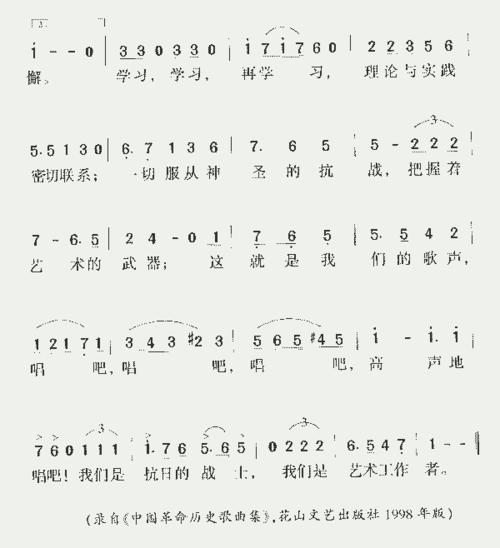 3
i - - 0 | 3 3 0 3 3 0 | i 7 i 7 6 0 | 2 2 3 5 6 |
懈。 学习，学习， 再学 习， 理论与实践
5. 5 1 3 0 | 6. 7 1 3 6 | 7. 6 5 | 5 - 2 2 2 |
3
密切联系； 一切服从神 圣的抗 战，把握着
7 - 6. 5 | 2 4 - 0 1 | 7 6 5 | 5. 5 4 2 |
艺 术的 武器； 这 就是我 们的歌声，
1 2 1 7 1 | 3 4 3 #2 3 | 5 6 5 #4 5 | i - i. i |
唱 吧，唱 吧，唱 吧，高 声地
3 3
7 6 0 1 1 1 | i. 7 6 5. 6 5 | 0 2 2 2 | 6. 5 4 7 | 1 - -
唱吧！我们是 抗日的战士，我们是 艺术工作者。
（录自《中国革命历史歌曲集》，花山文艺出版社1998年版）